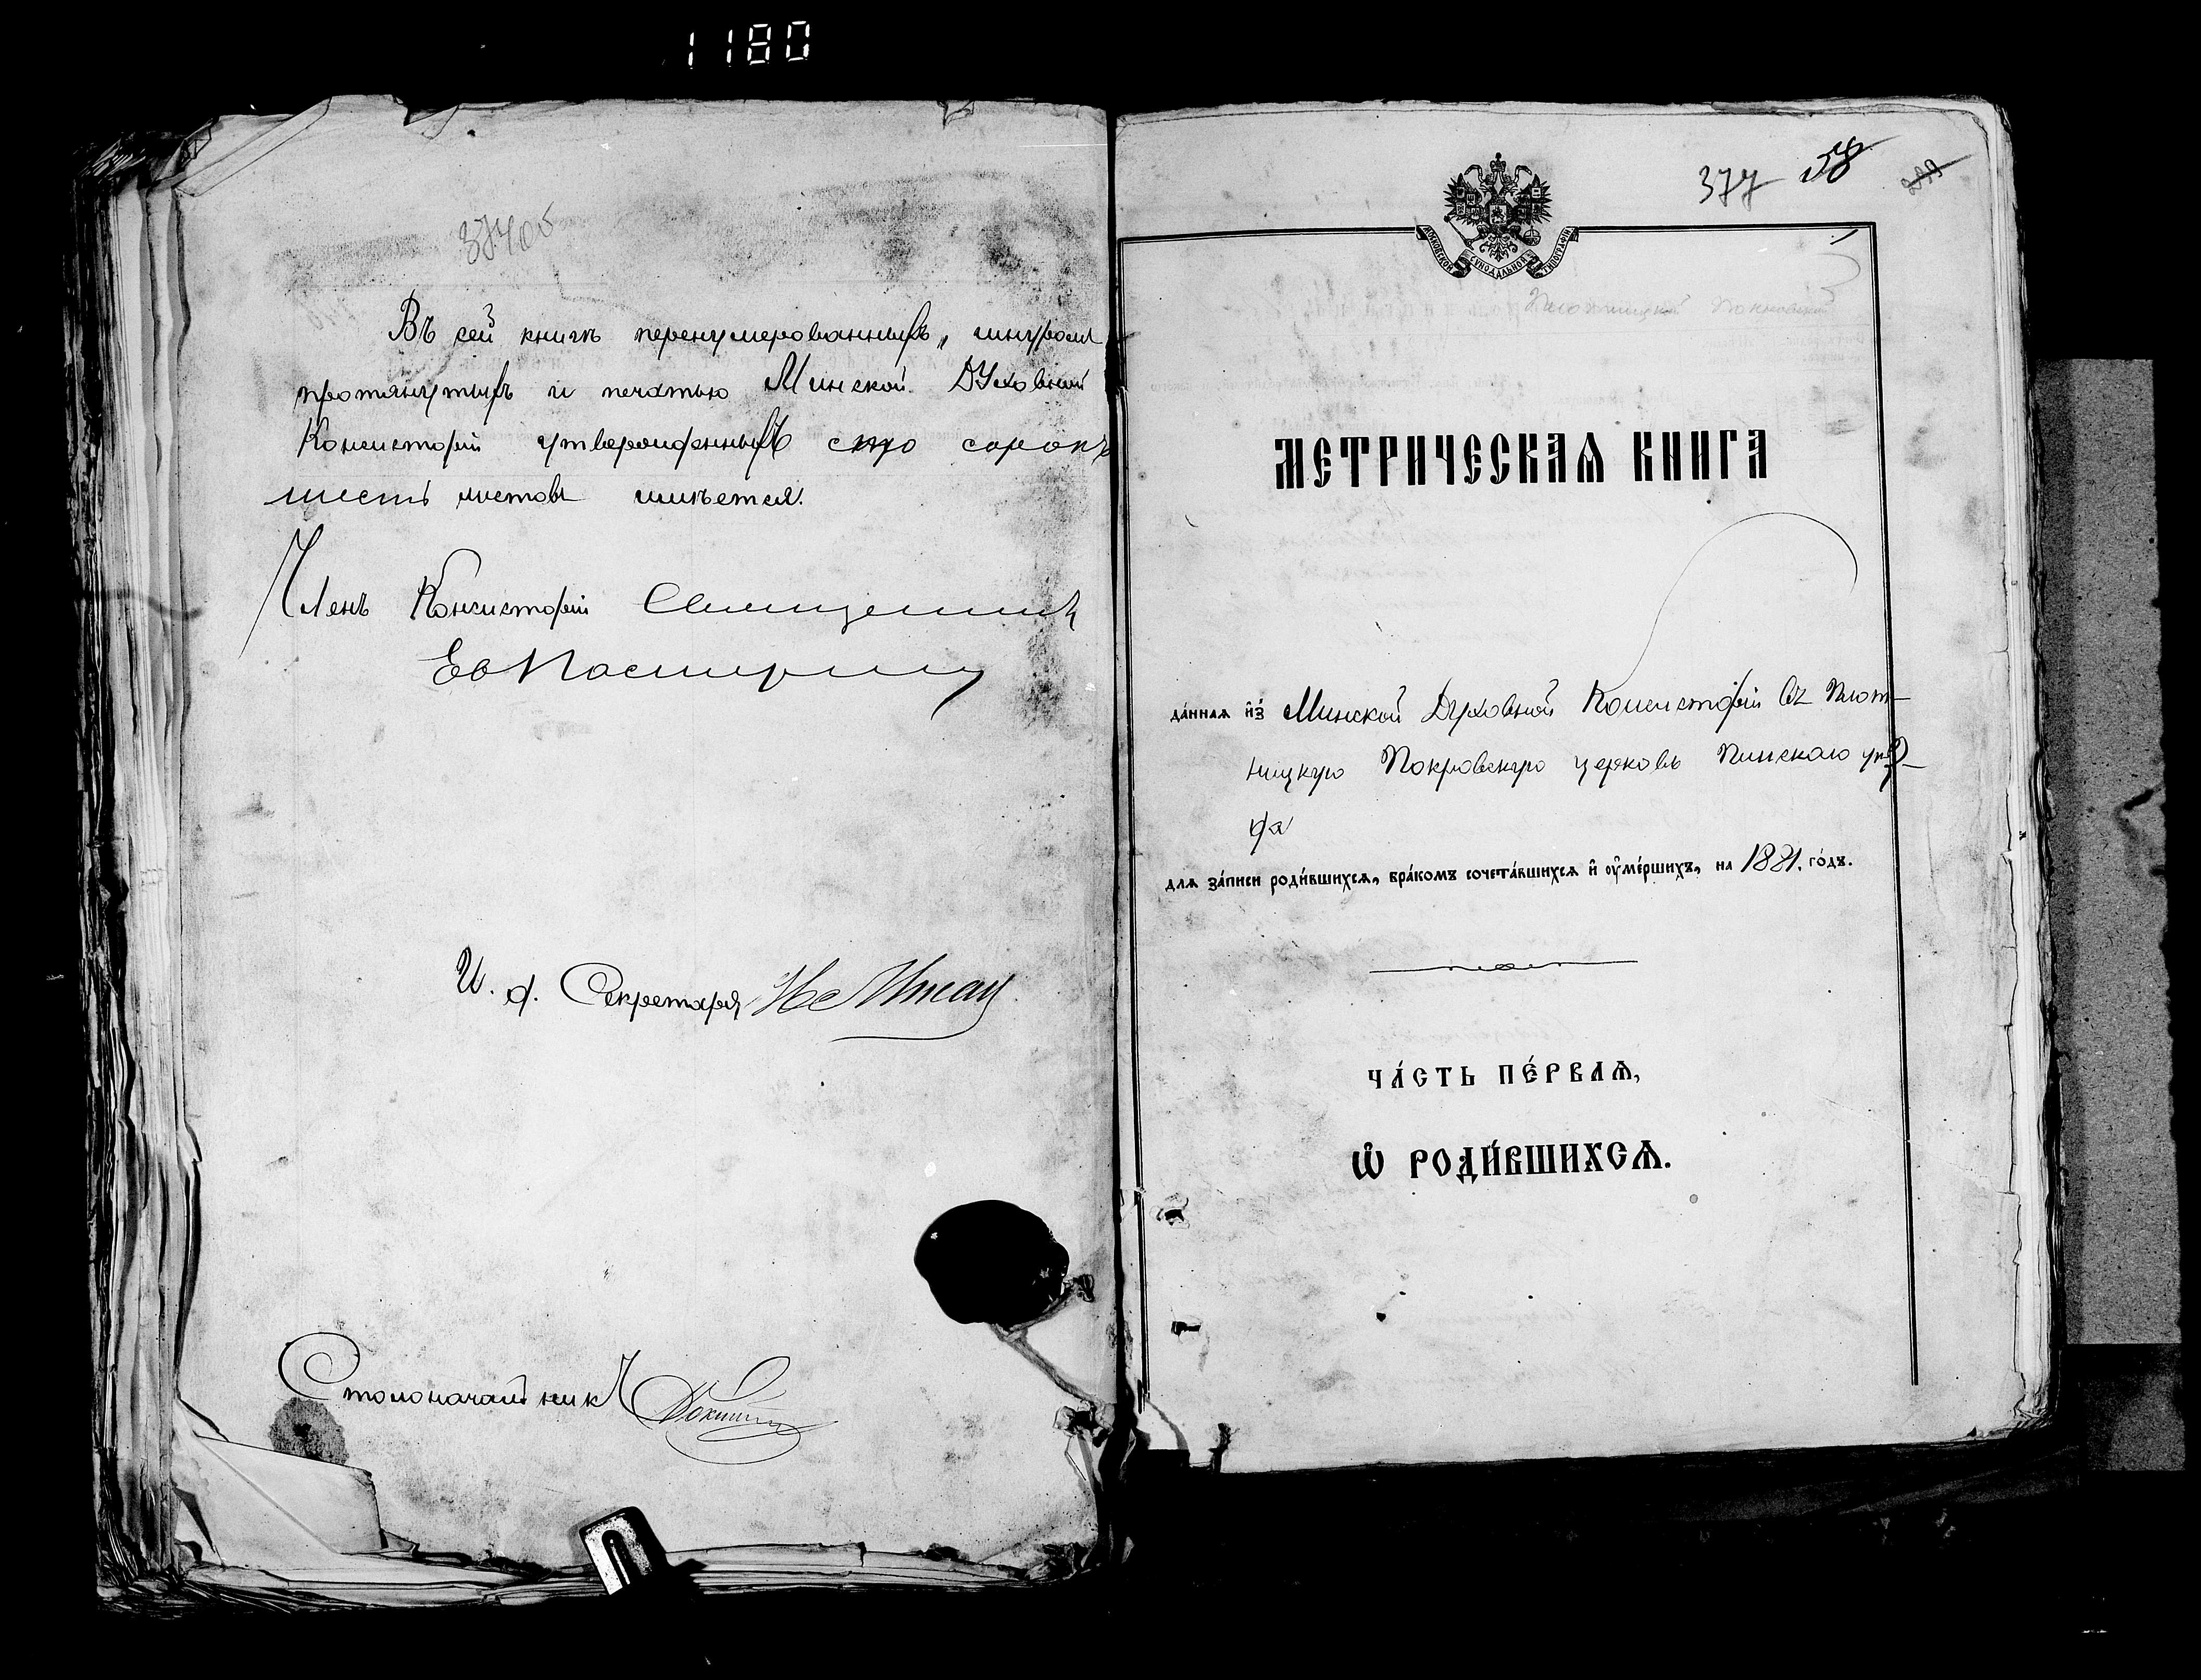 1180
Въ сей книгѣ перенумерованныхъ, шнуромъ
протянутыхъ и печатью Минской Духовной
Консисторіи утвержденныхъ сто сорокъ
шесть листовъ имѣется.
Членъ Консисторіи Священникъ
И. д. Секретаря
Столоначальникъ
377 58
МОСКОВСКОЙ СѴНОДАЛЬНОЙ ТИПОГРАФІИ
1
Покровской
МЕТРИЧЕСКАѦ КНИГА
да́ннаѧ и҆з̾ Минской Духовной Консисторіи въ Плот-
ницкую Покровскую церковь Пинскаго уѣз-
да
длѧ за́писи роди́вшихсѧ, бра́комъ сочета́вшихсѧ и҆ ᲂу҆ме́ршихъ, на 1881. го́дъ.
ЧА́СТЬ ПЕ́РВАѦ,
Ѡ҆ РОДИ́ВШИХСѦ.